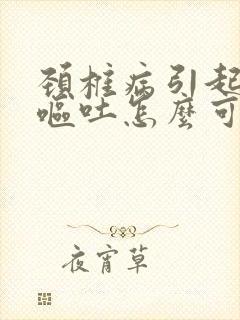 頚椎病引起
嘔吐怎麼可
夜宵草